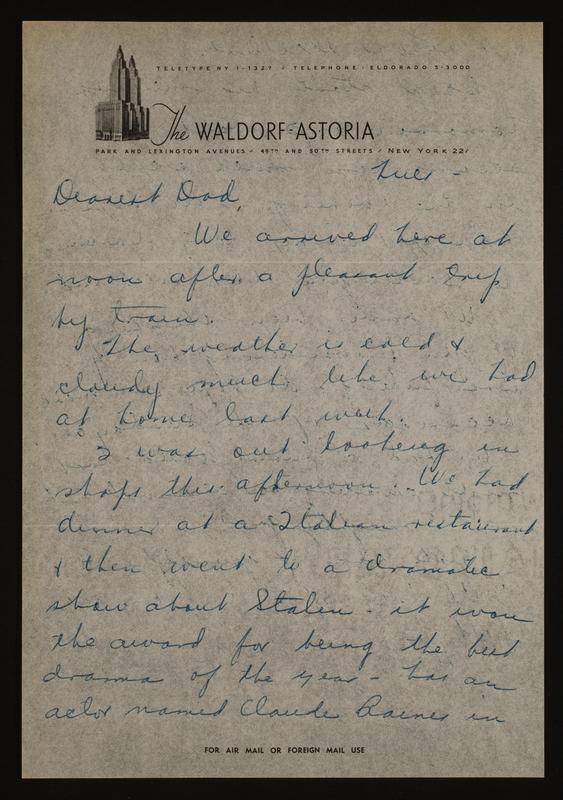 TELETYPE NY 1-1327 / TELEPHONE: ELDORADO 5-3000
The WALDORF-ASTORIA
PARK AND LEXINGTON AVENUES / 49TH AND 50TH STREETS / NEW YORK 22/
Tues -
Dearest Dad,
We arrived here at
noon after a pleasant trip
by train.
The weather is cold &
cloudy much like we had
at home last week.
I was out looking in
shops this afternoon. We had
dinner at a Italian restaurant
& then went to a dramatic
show about Stalin - it won
the award for being the best
drama of the year - has an
actor named Claude Raines in
FOR AIR MAIL OR FOREIGN MAIL USE